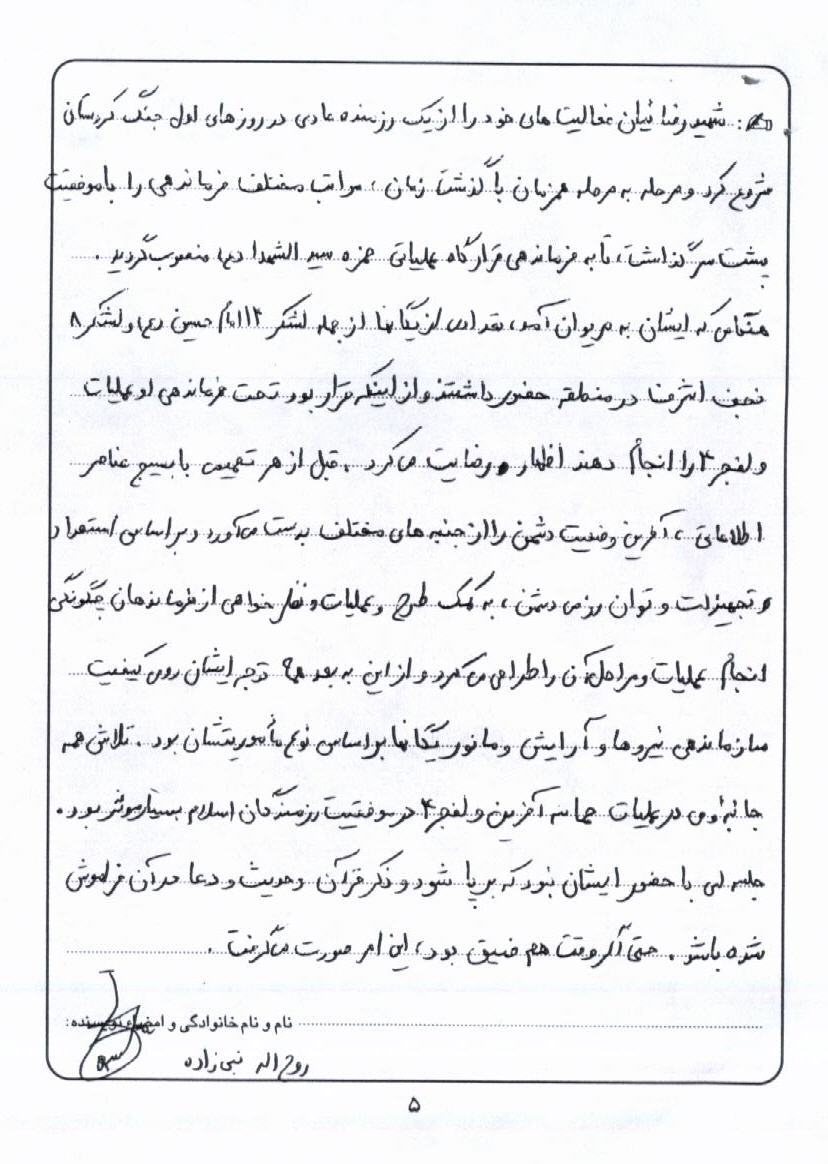 : شهید رضائیان فعالیت های خود را از یک رزمنده عادی در روزهای اول جنگ کردستان
شروع کرد و مرحله به مرحله همزمان با گذشت زمان ، مراتب مختلف فرماندهی را با موفقیت
پشت سر گذاشت ، تا به فرماندهی قرارگاه عملیاتی حمزه سید الشهدا (ع) منصوب گردید .
هنگامی که ایشان به مریوان آمد ، تعدادی از یگانها از جمله لشکر ۱۴ امام حسین (ع) و لشکر ۸
نجف اشرف در منطقه حضور داشتند و از اینکه قرار بود تحت فرماندهی او عملیات
والفجر ۴ را انجام دهند اظهار رضایت می کرد . قبل از هر تصمیمی با بسیج عناصر
اطلاعاتی ، آخرین وضعیت دشمن را از جنبه های مختلف بدست می آورد و بر اساس استعداد
و تجهیزات و توان رزمی دشمن ، به کمک طرح و عملیات و نظر خواهی از فرماندهان چگونگی
انجام عملیات و مراحل آن را طراحی می کرد و از این به بعد همه توجه ایشان روی کیفیت
سازماندهی نیروها و آرایش و مانور یگانها بر اساس نوع مأموریتشان بود . تلاش همه
جانبه وی در عملیات حماسه آفرین والفجر ۴ در موفقیت رزمندگان اسلام بسیار موثر بود .
جلسه ای با حضور ایشان نبود که برپا شود و ذکر قرآن و حدیث و دعا در آن فراموش
شده باشد . حتی اگر وقت هم ضیق بود ، این امر صورت می گرفت .
نام و نام خانوادگی و امضاء نویسنده:
روح اله نبی زاده
۵